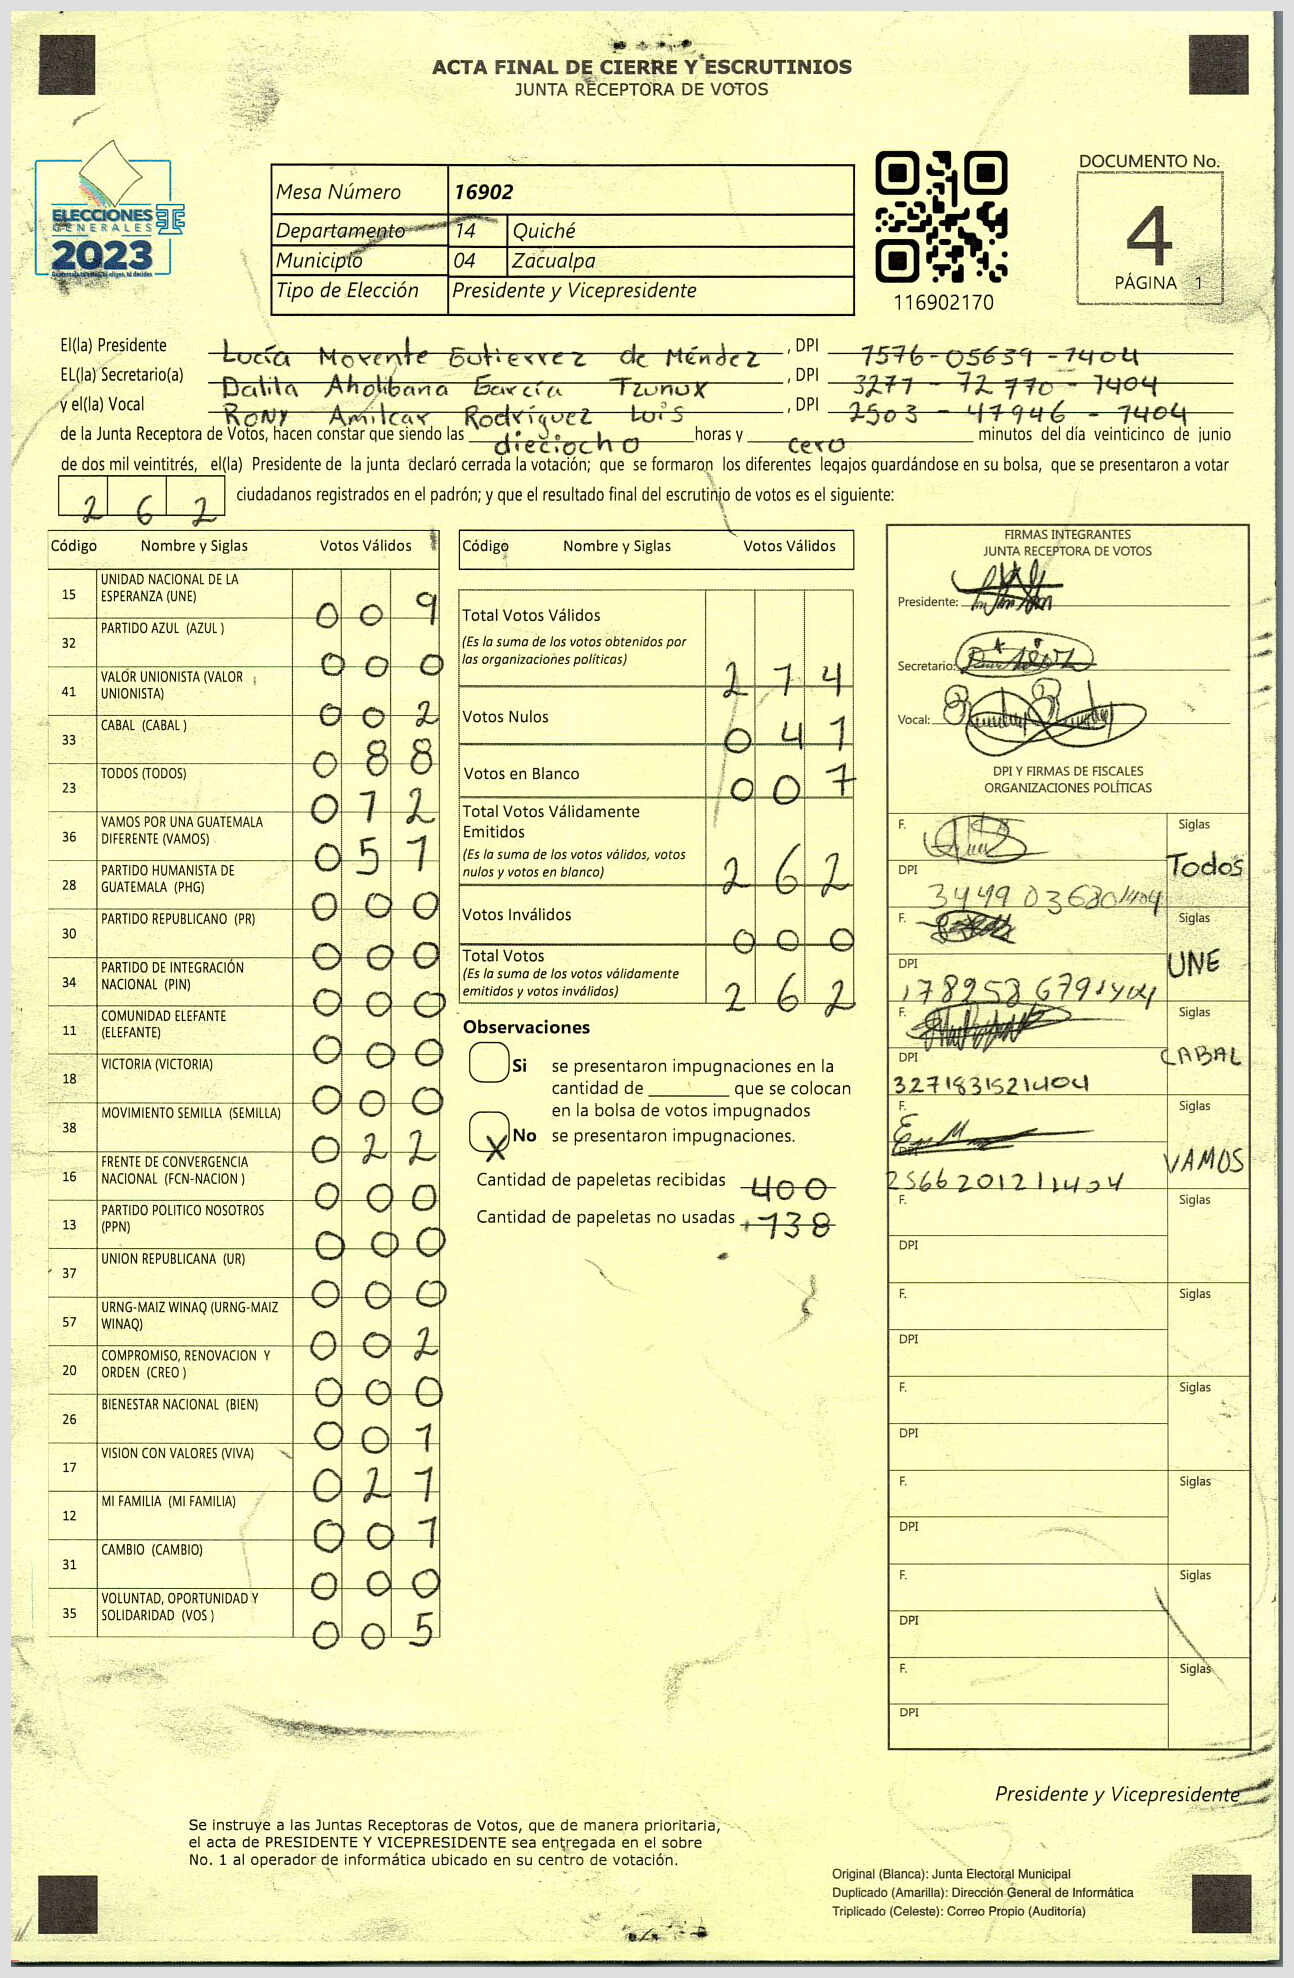 ACTA FINAL DE CIERRE Y ESCRUTINIOS
JUNTA RECEPTORA DE VOTOS
ELECCIONES
GENERALES
2023
Mesa Número 16902
Departamento 14 Quiché
Municipio 04 Zacualpa
Tipo de Elección Presidente y Vicepresidente
116902170
DOCUMENTO No.
4
PÁGINA 1
El(la) Presidente Lucía Morente Gutierrez de Méndez , DPI 1576-05639-1404
EL(la) Secretario(a) Dalila Aholibana García Tzunux , DPI 3277-72770-1404
y el(la) Vocal Rony Amilcar Rodríguez Luis , DPI 2503-47946-1404
de la Junta Receptora de Votos, hacen constar que siendo las dieciocho horas y cero minutos del día veinticinco de junio
de dos mil veintitrés, el(la) Presidente de la junta declaró cerrada la votación; que se formaron los diferentes legajos guardándose en su bolsa, que se presentaron a votar
262 ciudadanos registrados en el padrón; y que el resultado final del escrutinio de votos es el siguiente:
Código Nombre y Siglas Votos Válidos
15 UNIDAD NACIONAL DE LA ESPERANZA (UNE) 009
32 PARTIDO AZUL (AZUL ) 000
41 VALOR UNIONISTA (VALOR UNIONISTA) 002
33 CABAL (CABAL ) 088
23 TODOS (TODOS) 012
36 VAMOS POR UNA GUATEMALA DIFERENTE (VAMOS) 051
28 PARTIDO HUMANISTA DE GUATEMALA (PHG) 000
30 PARTIDO REPUBLICANO (PR) 000
34 PARTIDO DE INTEGRACIÓN NACIONAL (PIN) 000
11 COMUNIDAD ELEFANTE (ELEFANTE) 000
18 VICTORIA (VICTORIA) 000
38 MOVIMIENTO SEMILLA (SEMILLA) 022
16 FRENTE DE CONVERGENCIA NACIONAL (FCN-NACION ) 000
13 PARTIDO POLITICO NOSOTROS (PPN) 000
37 UNION REPUBLICANA (UR) 000
57 URNG-MAIZ WINAQ (URNG-MAIZ WINAQ) 002
20 COMPROMISO, RENOVACION Y ORDEN (CREO ) 000
26 BIENESTAR NACIONAL (BIEN) 001
17 VISION CON VALORES (VIVA) 021
12 MI FAMILIA (MI FAMILIA) 001
31 CAMBIO (CAMBIO) 000
35 VOLUNTAD, OPORTUNIDAD Y SOLIDARIDAD (VOS ) 005
Código Nombre y Siglas Votos Válidos
Total Votos Válidos
(Es la suma de los votos obtenidos por
las organizaciones políticas) 214
Votos Nulos 041
Votos en Blanco 007
Total Votos Válidamente
Emitidos
(Es la suma de los votos válidos, votos
nulos y votos en blanco) 262
Votos Inválidos 000
Total Votos
(Es la suma de los votos válidamente
emitidos y votos inválidos) 262
Observaciones
Si se presentaron impugnaciones en la
cantidad de ________ que se colocan
en la bolsa de votos impugnados
X No se presentaron impugnaciones.
Cantidad de papeletas recibidas 400
Cantidad de papeletas no usadas 138
FIRMAS INTEGRANTES
JUNTA RECEPTORA DE VOTOS
Presidente:
Secretario:
Vocal:
DPI Y FIRMAS DE FISCALES
ORGANIZACIONES POLÍTICAS
F. Siglas
Todos
DPI
3449036801404
F. Siglas
UNE
DPI
F. Siglas
CABAL
DPI
3271831521404
F. Siglas
VAMOS
DPI
2566201211404
F. Siglas
DPI
F. Siglas
DPI
F. Siglas
DPI
F. Siglas
DPI
F. Siglas
DPI
F. Siglas
DPI
Presidente y Vicepresidente
Se instruye a las Juntas Receptoras de Votos, que de manera prioritaria,
el acta de PRESIDENTE Y VICEPRESIDENTE sea entregada en el sobre
No. 1 al operador de informática ubicado en su centro de votación.
Original (Blanca): Junta Electoral Municipal
Duplicado (Amarilla): Dirección General de Informática
Triplicado (Celeste): Correo Propio (Auditoría)